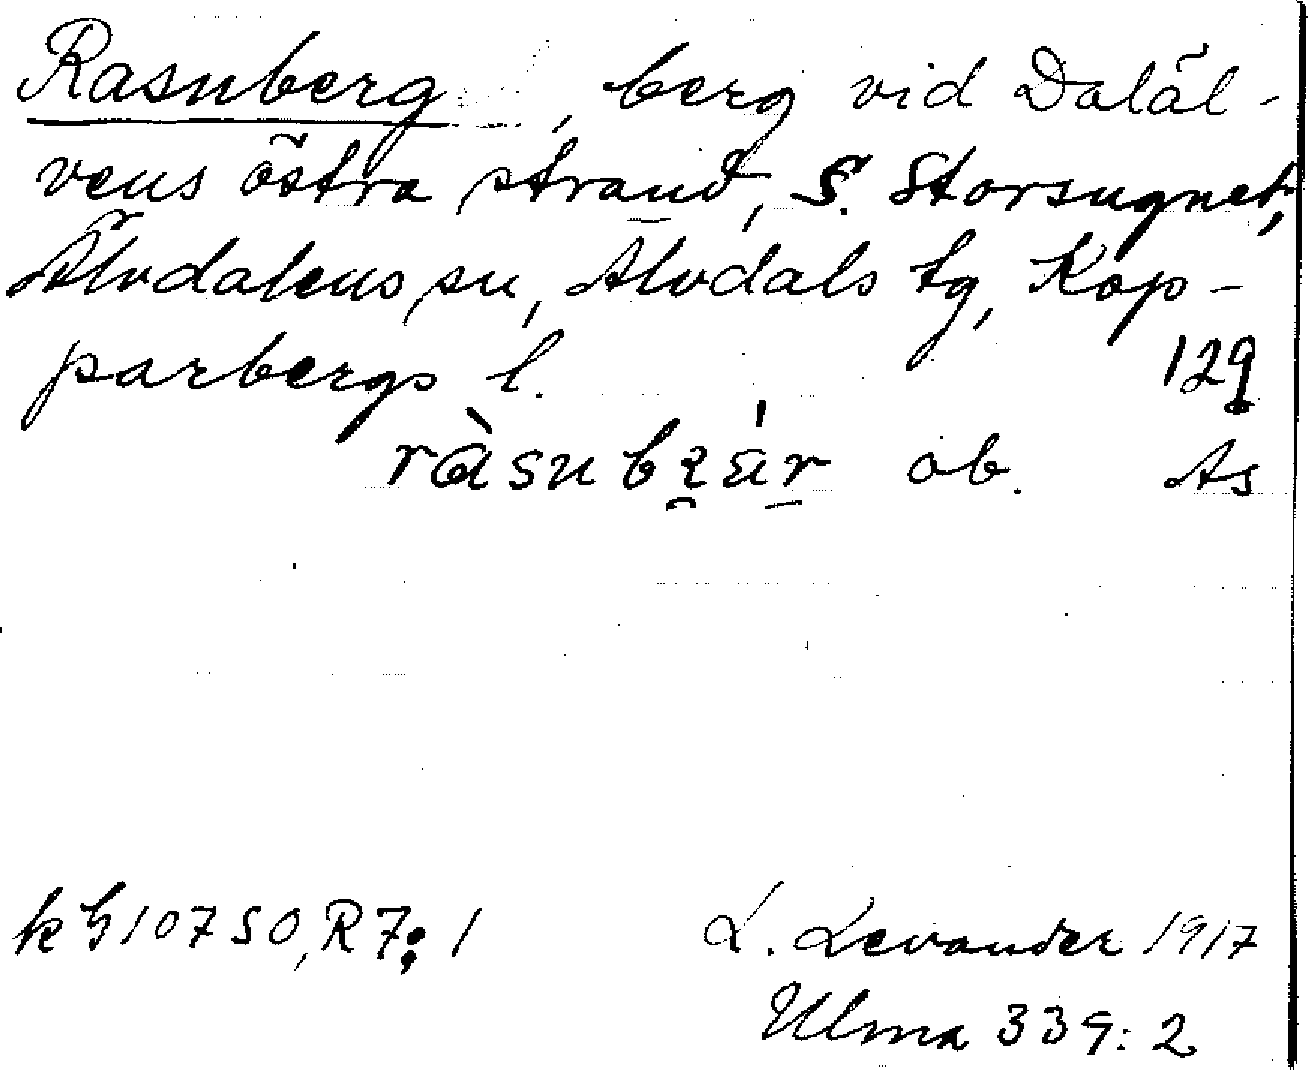 Rasnberg, berg vid Daläl-
vens östra strand, S. Storsugnet,
Älvdalens sn, Älvdals tg, Kop-
parbergs l. 129
ràsnbɛár ob. As
k G 10750, R7:1 L. Levander 1917
Ulma 339:2